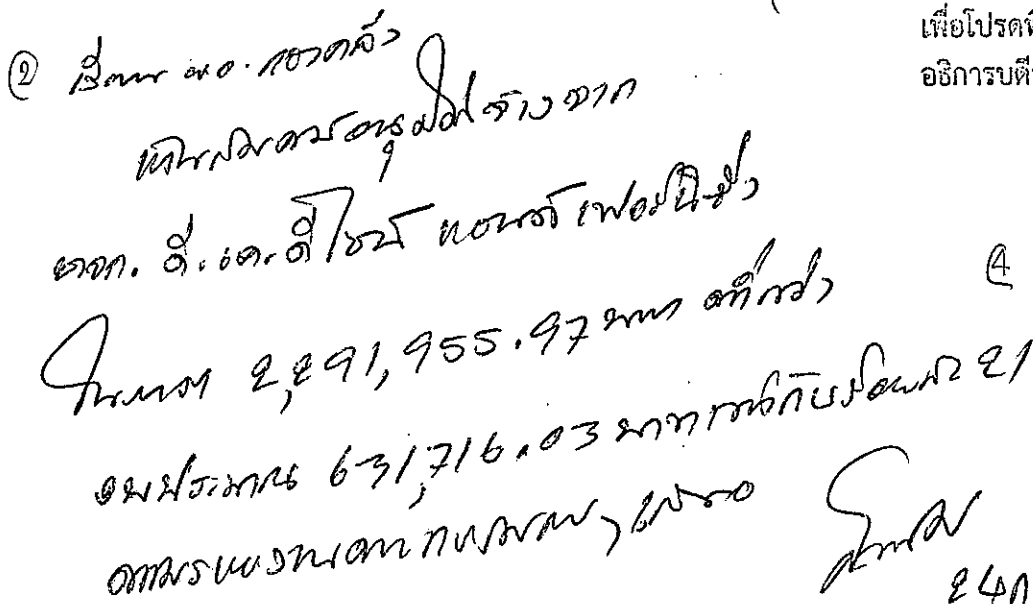 เพื่อโปรดพิ
อธิการบดี
② เรียน ผอ. กองคลัง
เห็นสมควรอนุมัติจ้างจาก
หจก. ดี.เค.ดีไซน์ แอนด์ เฟอร์นิชิ่ง
④
ในราคา 2,291,955.97 บาท ต่ำกว่า
งบประมาณ 631,716.03 บาท เท่ากับร้อยละ 21
ตามรายงาน เสนอ
24 ก